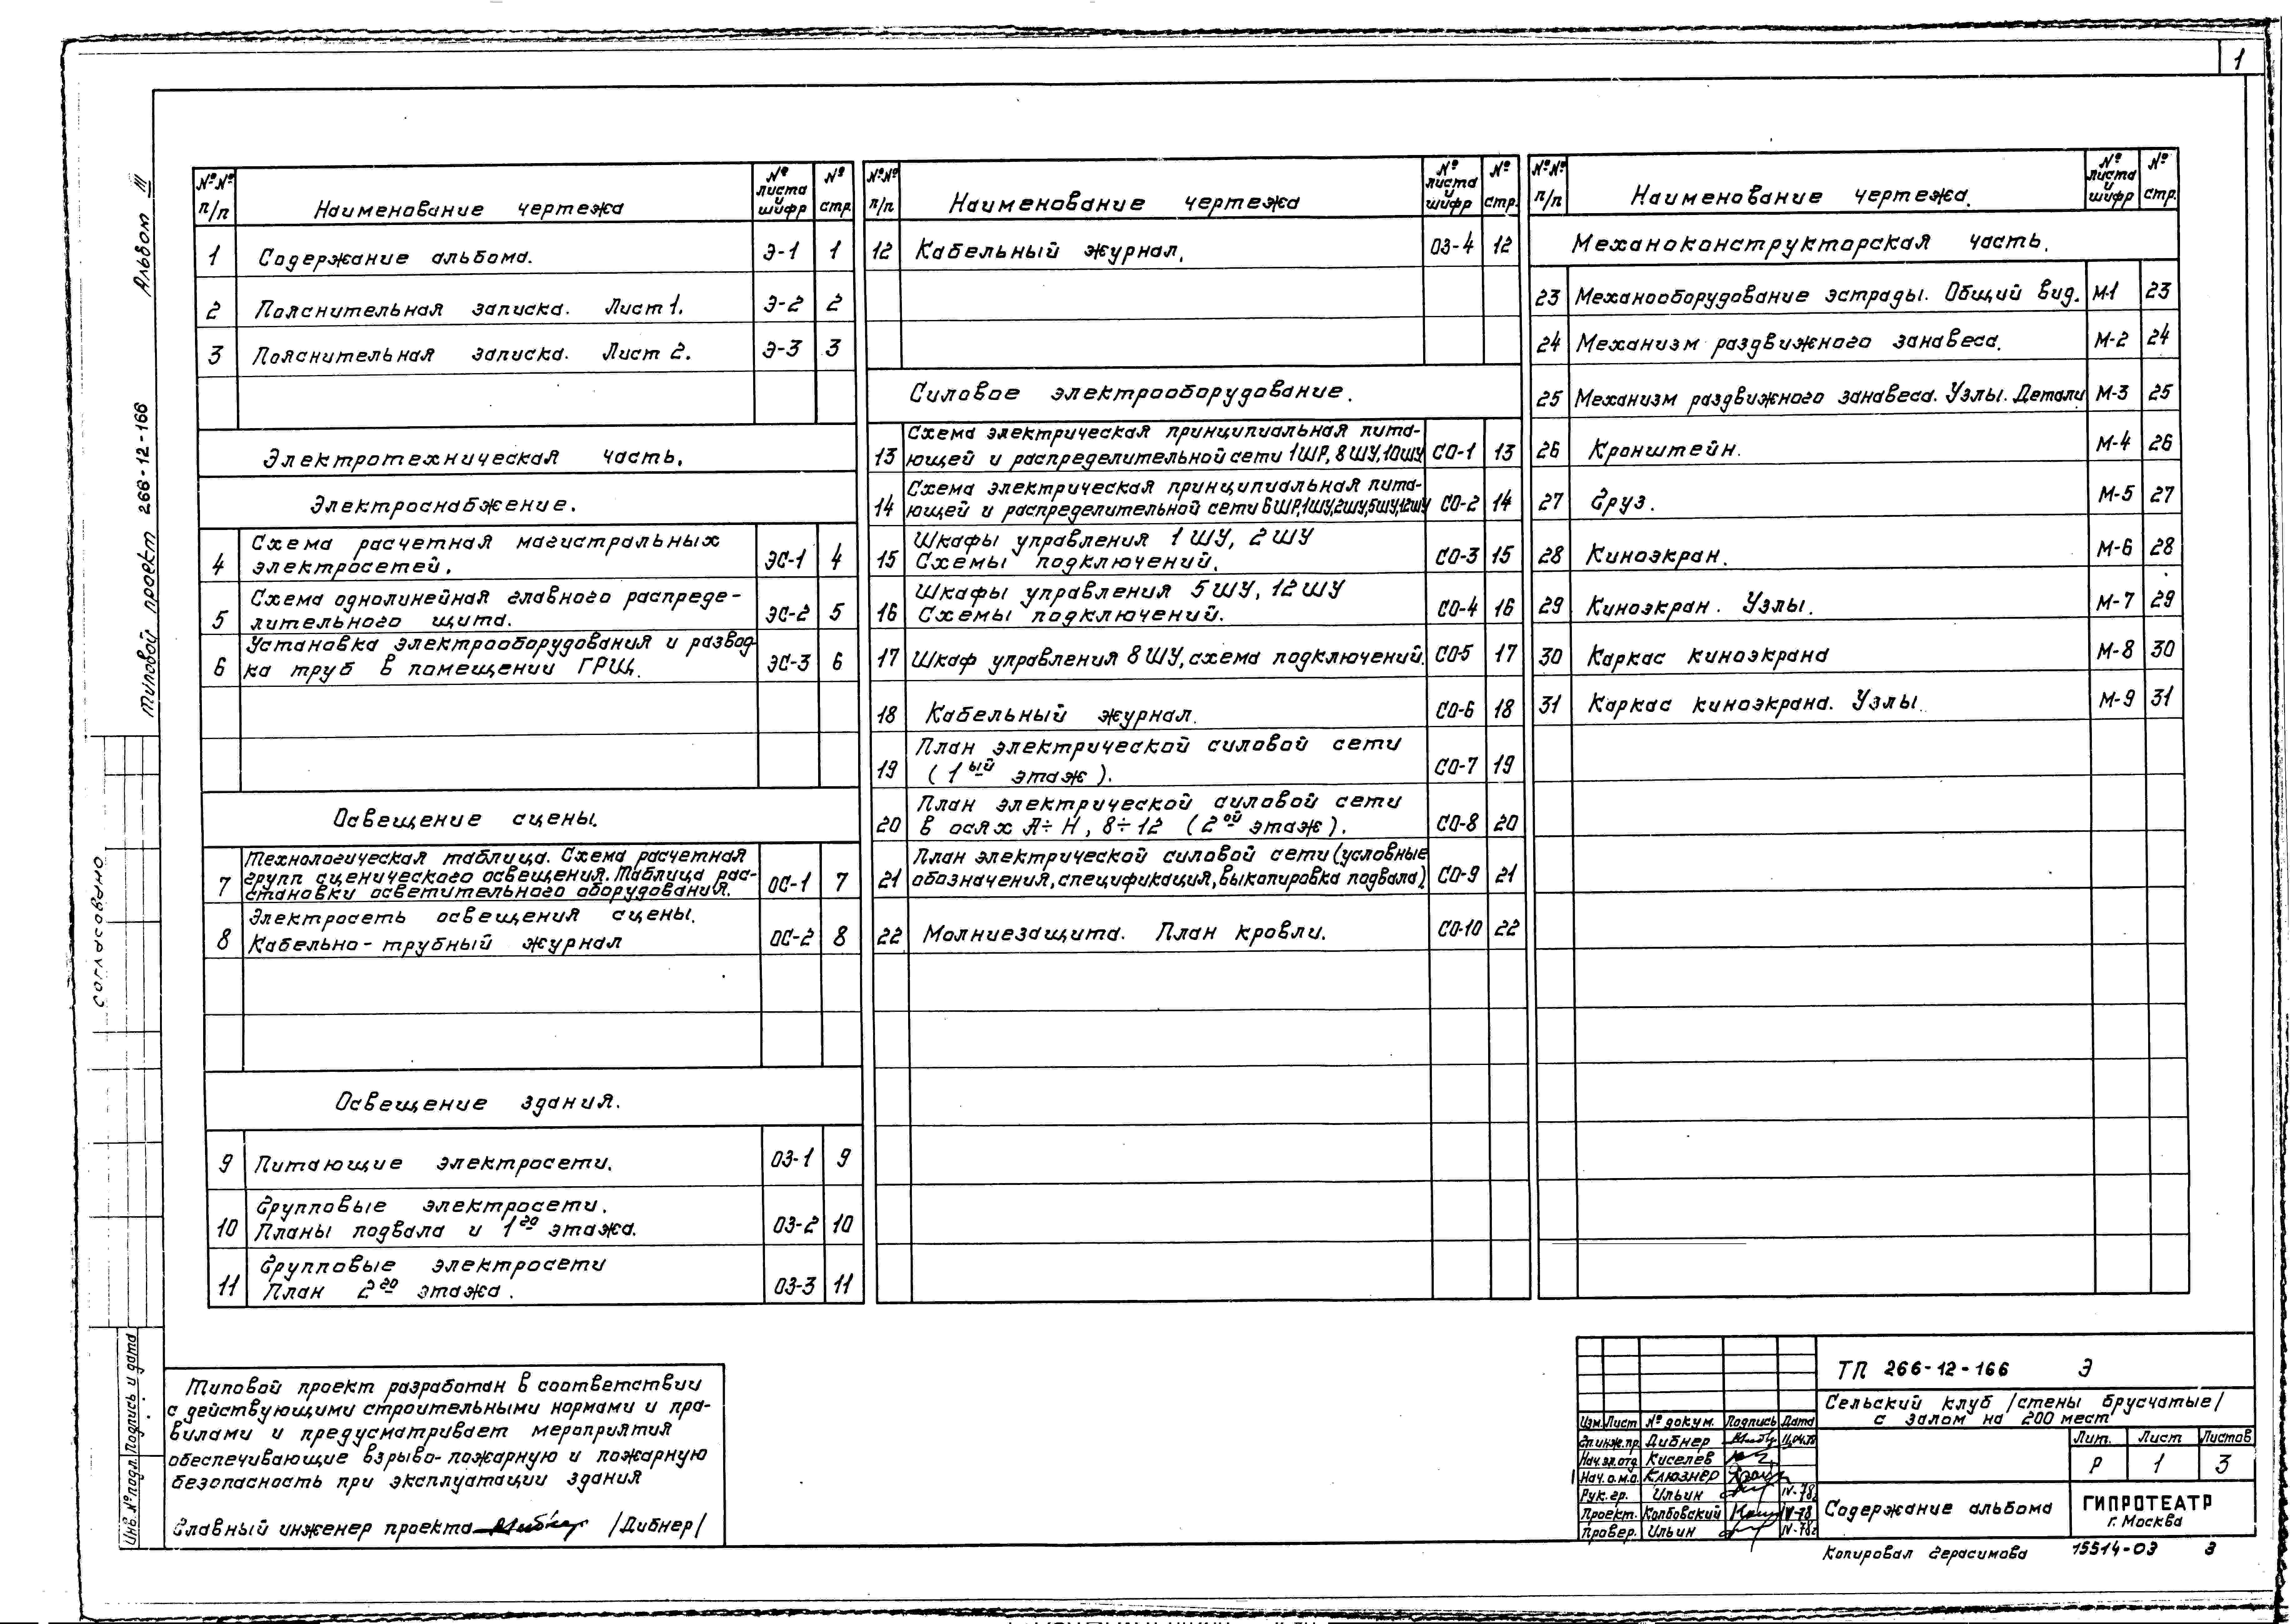 1
Альбом III
Типовой проект 266-12-166
Согласовано
Инв. № подл. Подпись и дата
№№ п/п Наименование чертежа № листа и шифр № стр.
1 Содержание альбома. Э-1 1
2 Пояснительная записка. Лист 1. Э-2 2
3 Пояснительная записка. Лист 2. Э-3 3
Электротехническая часть.
Электроснабжение.
4 Схема расчетная магистральных
электросетей. ЭС-1 4
5 Схема однолинейная главного распреде-
лительного щита. ЭС-2 5
6 Установка электрооборудования и развод-
ка труб в помещении ГРЩ. ЭС-3 6
Освещение сцены.
7 Технологическая таблица. Схема расчетная
групп сценического освещения. Таблица рас-
становки осветительного оборудования. ОС-1 7
8 Электросеть освещения сцены.
Кабельно-трубный журнал ОС-2 8
Освещение здания.
9 Питающие электросети. ОЗ-1 9
10 Групповые электросети.
Планы подвала и 1го этажа. ОЗ-2 10
11 Групповые электросети
План 2го этажа. ОЗ-3 11
№№ п/п Наименование чертежа № листа и шифр № стр.
12 Кабельный журнал. ОЗ-4 12
Силовое электрооборудование.
13 Схема электрическая принципиальная пита-
ющей и распределительной сети 1ШР, 8ШУ, 10ШУ СО-1 13
14 Схема электрическая принципиальная пита-
ющей и распределительной сети 6ШР,1ШУ,2ШУ,5ШУ,12ШУ СО-2 14
15 Шкафы управления 1ШУ, 2ШУ
Схемы подключений. СО-3 15
16 Шкафы управления 5ШУ, 12ШУ
Схемы подключений. СО-4 16
17 Шкаф управления 8ШУ, схема подключений. СО-5 17
18 Кабельный журнал. СО-6 18
19 План электрической силовой сети
(1ый этаж). СО-7 19
20 План электрической силовой сети
в осях А÷Н, 8÷12 (2ой этаж). СО-8 20
21 План электрической силовой сети (условные
обозначения, спецификация, выкопировка подвала) СО-9 21
22 Молниезащита. План кровли. СО-10 22
№№ п/п Наименование чертежа. № листа и шифр № стр.
Механоконструкторская часть.
23 Механооборудование эстрады. Общий вид. М-1 23
24 Механизм раздвижного занавеса. М-2 24
25 Механизм раздвижного занавеса. Узлы. Детали М-3 25
26 Кронштейн. М-4 26
27 Груз. М-5 27
28 Киноэкран. М-6 28
29 Киноэкран. Узлы. М-7 29
30 Каркас киноэкрана М-8 30
31 Каркас киноэкрана. Узлы. М-9 31
Типовой проект разработан в соответствии
с действующими строительными нормами и пра-
вилами и предусматривает мероприятия
обеспечивающие взрыво-пожарную и пожарную
безопасность при эксплуатации здания
Главный инженер проекта /Дибнер/
ТП 266-12-166 Э
Сельский клуб /стены брусчатые/
с залом на 200 мест
Изм. Лист № докум. Подпись Дата
Гл.инж.пр. Дибнер 11.04.78
Нач.эл.отд. Киселев
Нач.о.м.о. Клюзнер
Рук.гр. Ильин IV-78
Проект. Колбовский IV-78
Провер. Ильин IV-78г
Лит. Лист Листов
Р 1 3
Содержание альбома
ГИПРОТЕАТР
г. Москва
Копировал Герасимова 15514-03 3